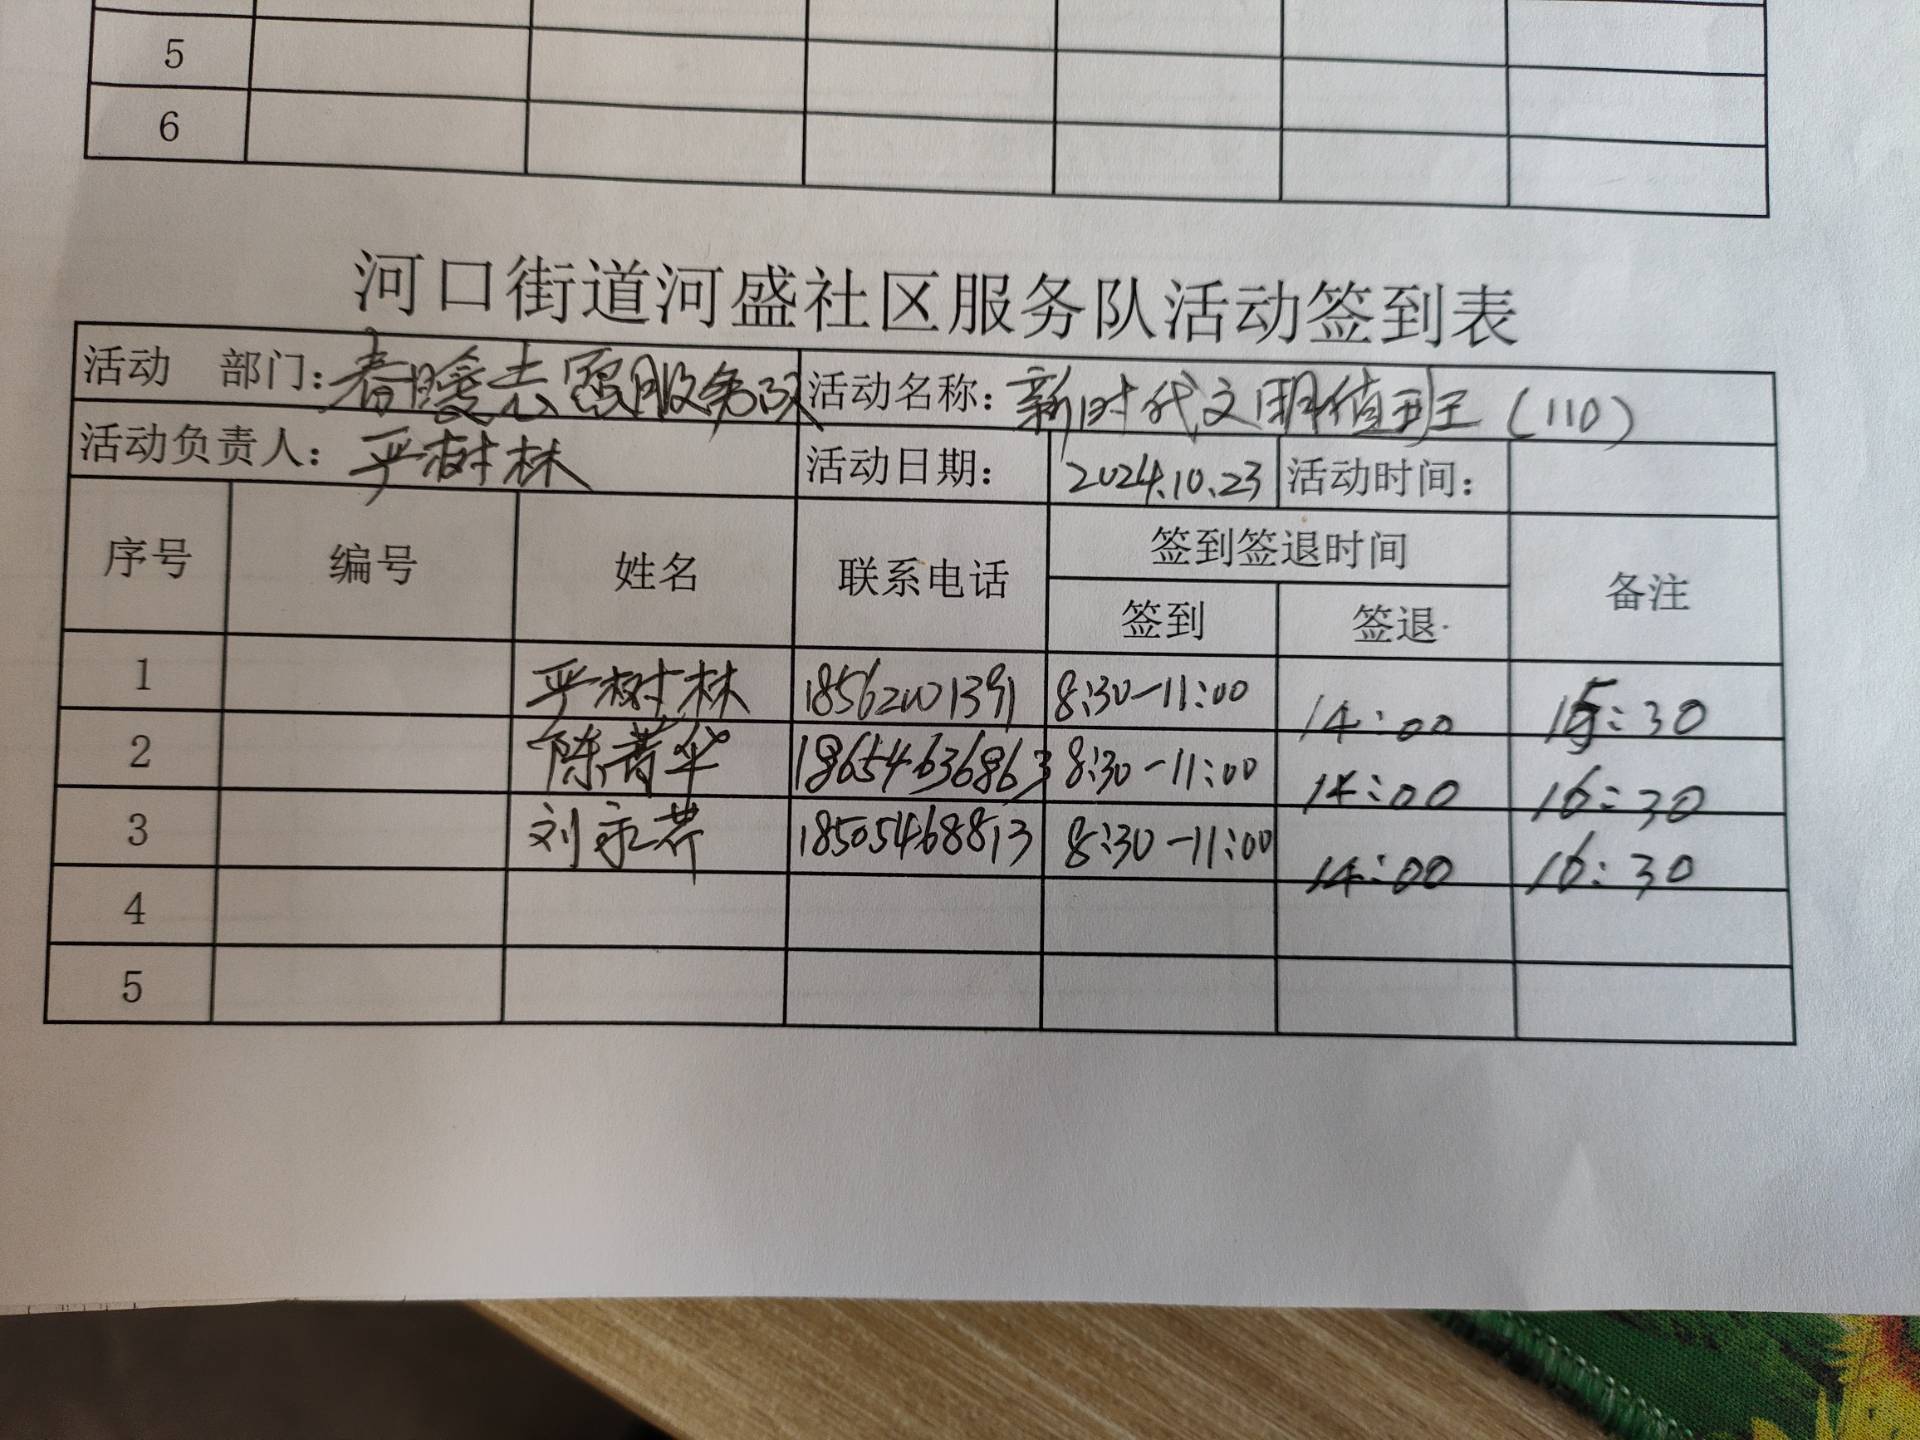 5
6
河口街道河盛社区服务队活动签到表
活动 部门：春暖志愿服务队 活动名称：新时代文明值班（110）
活动负责人：严树林 活动日期： 2024.10.23 活动时间：
序号 编号 姓名 联系电话 签到签退时间 备注
签到 签退
1 严树林 18562001391 8:30-11:00 14:00 :30
2 陈菁华 18654636863 8:30-11:00 14:00 16:30
3 刘永芹 18505468813 8:30-11:00 14:00 16:30
4
5